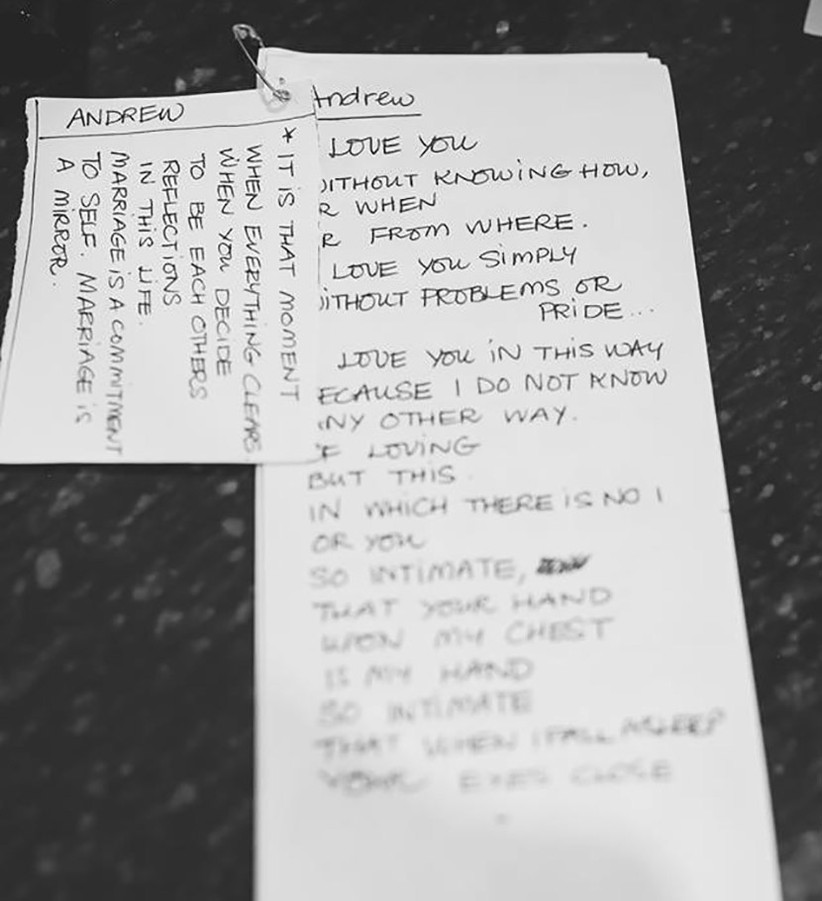 ANDREW
* IT IS THAT MOMENT
WHEN EVERYTHING CLEARS.
WHEN YOU DECIDE
TO BE EACH OTHERS
REFLECTIONS
IN THIS LIFE.
MARRIAGE IS A COMMITMENT
TO SELF. MARRIAGE IS
A MIRROR.
Andrew
LOVE YOU
WITHOUT KNOWING HOW,
R WHEN
R FROM WHERE.
LOVE YOU SIMPLY
WITHOUT PROBLEMS OR
PRIDE...
LOVE YOU IN THIS WAY
ECAUSE I DO NOT KNOW
ANY OTHER WAY.
F LOVING
BUT THIS
IN WHICH THERE IS NO I
OR YOU
SO INTIMATE,
THAT YOUR HAND
UPON MY CHEST
IS MY HAND
SO INTIMATE
THAT WHEN I FALL ASLEEP
YOUR EYES CLOSE